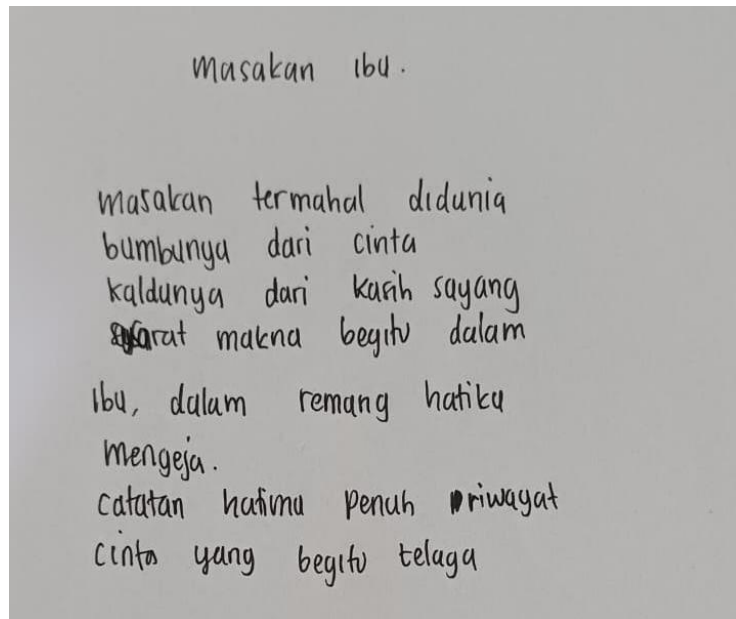 Masakan ibu.
masakan termahal didunia
bumbunya dari cinta
kaldunya dari kasih sayang
sarat makna begitu dalam
Ibu, dalam remang hatiku
mengeja.
catatan hatimu penuh riwayat
cinta yang begitu telaga